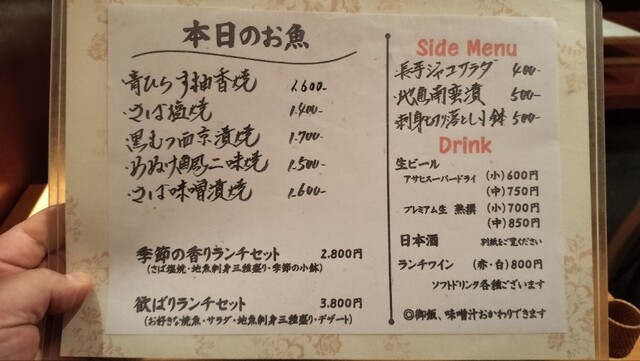 本日のお魚
・青ひらす柚香焼 1.600-
・さば塩焼 1.400-
・黒むつ西京漬焼 1.700-
・あぬけ風二味焼 1.500-
・さば味噌漬焼 1.600-
季節の香りランチセット 2.800円
(さば塩焼・地魚刺身三種盛り・季節の小鉢)
欲ばりランチセット 3.800円
(お好きな焼魚・サラダ・地魚刺身三種盛り・デザート)
Side Menu
長芋ジャコサラダ 400-
・地魚南蛮漬 500-
刺身切り落とし小鉢 500-
Drink
生ビール
アサヒスーパードライ (小)600円
(中)750円
プレミアム生 熟撰 (小)700円
(中)850円
日本酒 別紙をご覧ください
ランチワイン (赤・白)800円
ソフトドリンク各種ございます
◎御飯、味噌汁おかわりできます